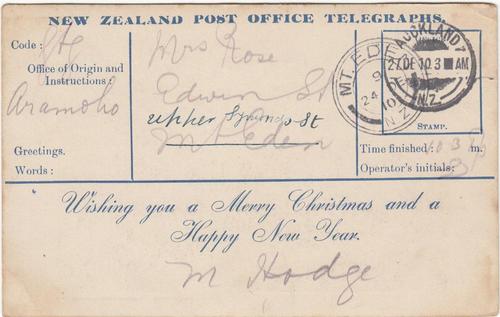 NEW ZEALAND POST OFFICE TELEGRAPHS.
Code:
Office of Origin and
Instructions:
Aramoho
Greetings.
Words:
Mrs Rose
Edwin St
Upper Symonds St
Mt Eden
MT. EDEN
9
24
10
N.Z.
AUCKLAND
27 DE 10 3 AM
N.Z.
STAMP.
Time finished: m.
Operator's initials:
Wishing you a Merry Christmas and a
Happy New Year.
M Hodge